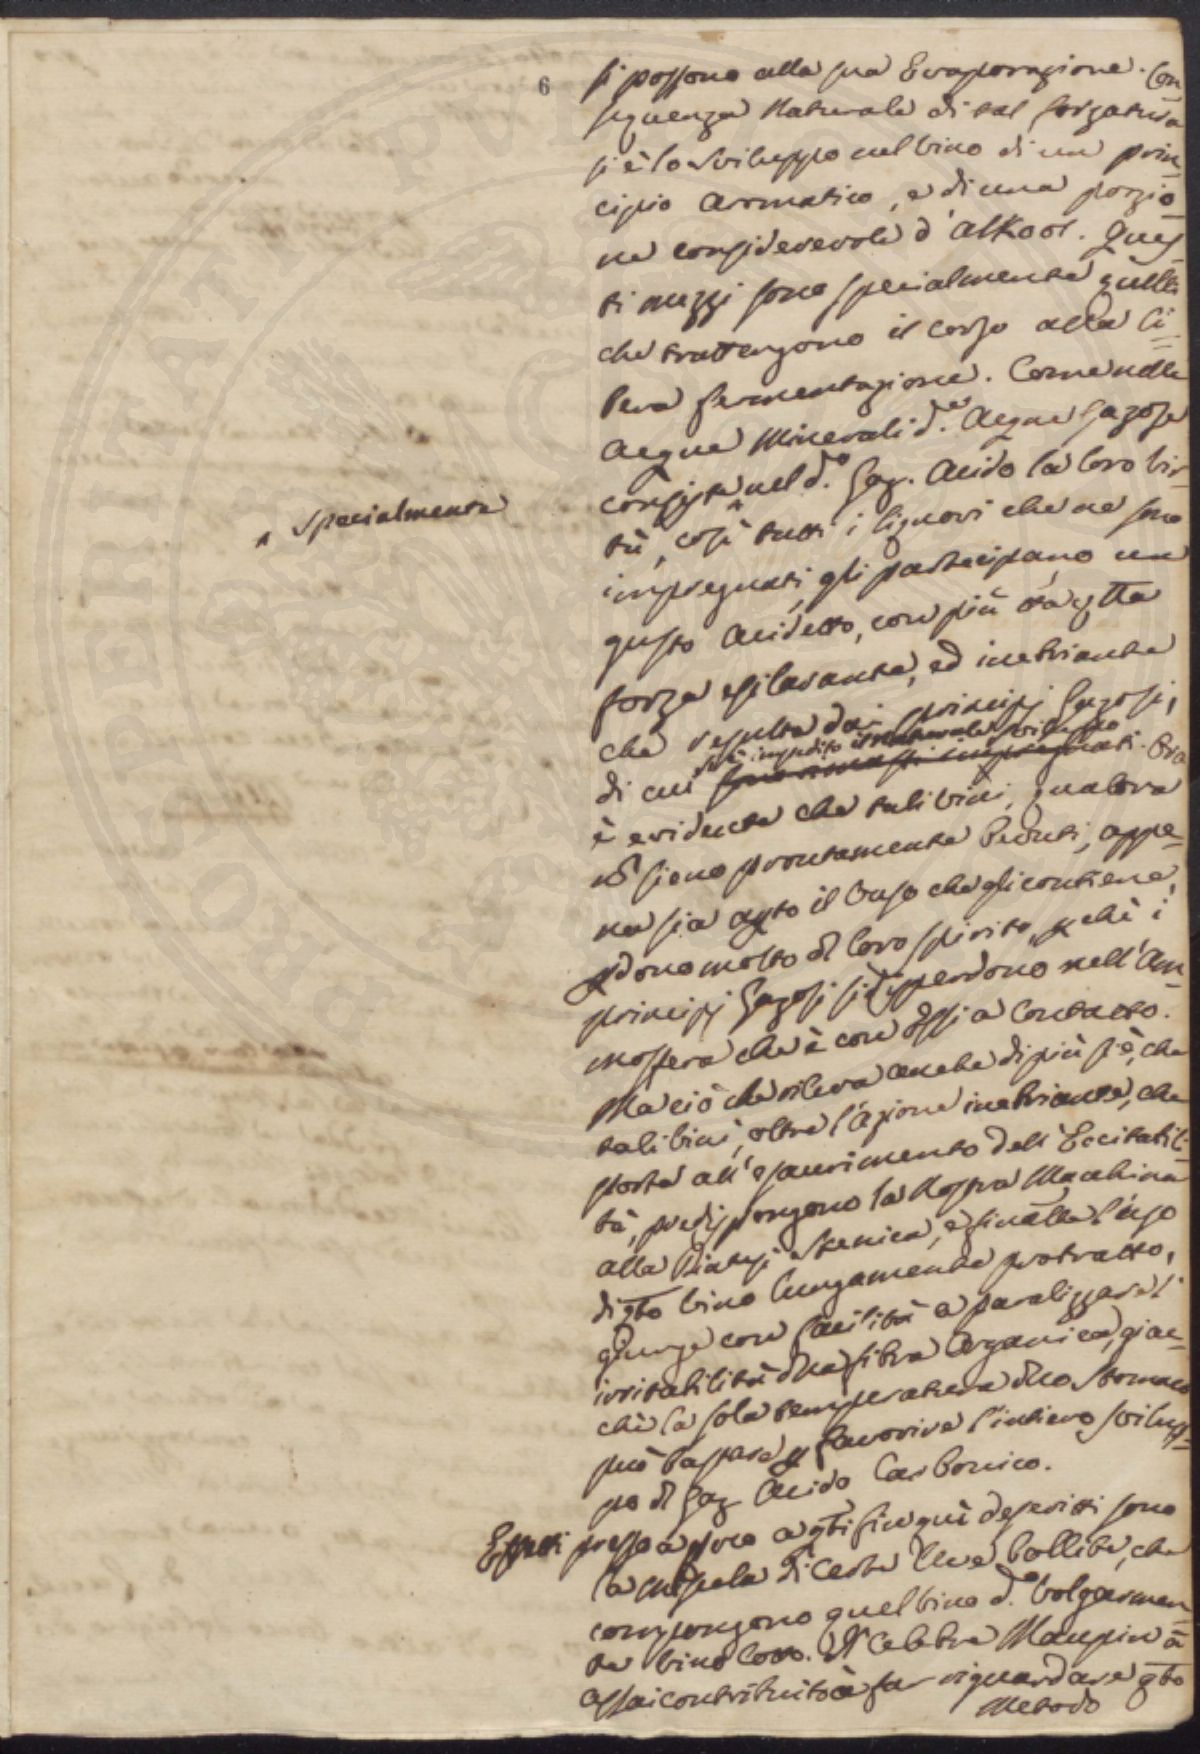 6
si possono alla sua Evaporazione. Con
seguenza Naturale di tal forzatura
si è lo sviluppo nel vino di un prin
cipio aromatico, e di una porzio
ne considerevole d'alKool. Ques
ti mezzi sono specialmente quelli
che trattengono il corso alla li
bera fermentazione. Come nelle
Acque Minerali d.e Acque Gazose
consiste nel d.o Gaz. Acido la loro vir
tù, così tutti i liquori che ne sono
^ specialmente
impregnati, gli partecipano un
gusto Acidetto, con più
forza esilarante, ed inebriante
che resulta dai principj Gazosi,
impedito il naturale sviluppo
di cui sono rimasti impregnati. Ora
è evidente che tali vini, qualora
nō sieno prontamente bevuti, appe
na sia apto il vaso che gli contiene,
pdono molto di loro spirito, pchè i
principj Gazosi si disperdono nell'Am
mosfera che è con Essi a Contatto.
Ma ciò che rileva anche di più si è, che
tali vini, oltre l'azione inebriante, che
porta all'esaurimento dell'Eccitabili
tà, predispongono la Nostra Macchina
alla Diatesi Stenica, e finālte l'uso
di qto vino lungamente protratto,
giunge con facilità a paralizzare l'
irritabilità dlla fibra Organica, giac
chè la sola temperatura dllo Stomaco
può bastare p favorire l'intiero svilup
po di Gaz Acido Carbonico.
Effetti presso a poco a qti fin qui descritti sono
la di certe Uve bollite, che
compongono quel vino d.o volgarmen
te vino Cotto. Il Celebre Maupin à
assai contribuito a far riguardare qto
Metodo